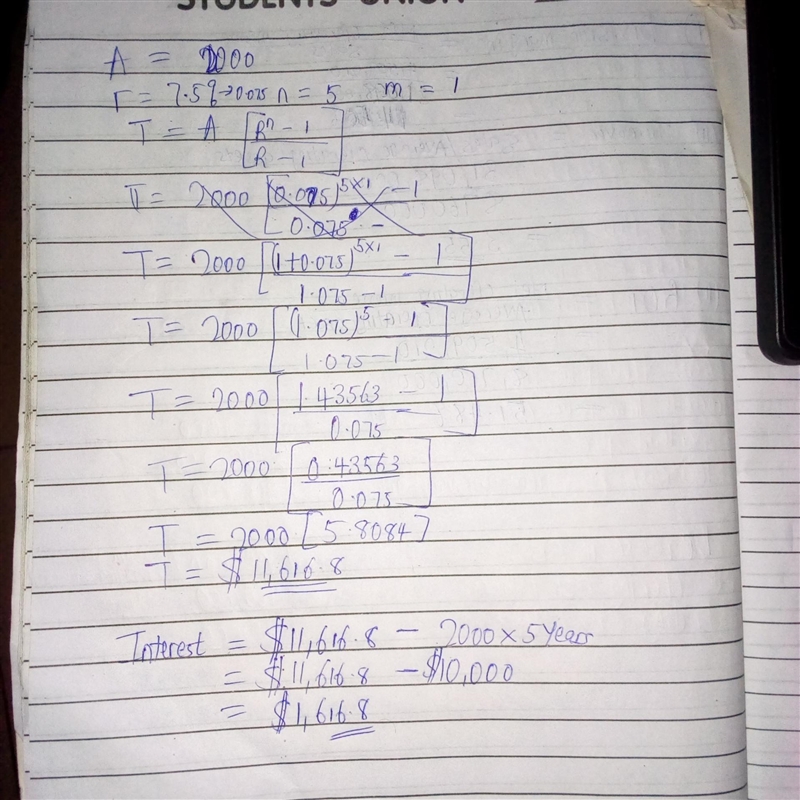 STUDENTS' UNION
A = 2000
r = 7.5%→0.075 n = 5 m = 1
T = A [R^n - 1
R - 1]
T = 2000 [(0.075)^5×1 - 1
0.075 -
T = 2000 [(1+0.075)^5×1 - 1
1.075 - 1]
T = 2000 [(1.075)^5 - 1
1.075 - 1]
T = 2000 [1.43563 - 1
0.075]
T = 2000 [0.43563
0.075]
T = 2000 [5.8084]
T = $11,616.8
Interest = $11,616.8 - 2000 × 5 Years
= $11,616.8 - $10,000
= $1,616.8